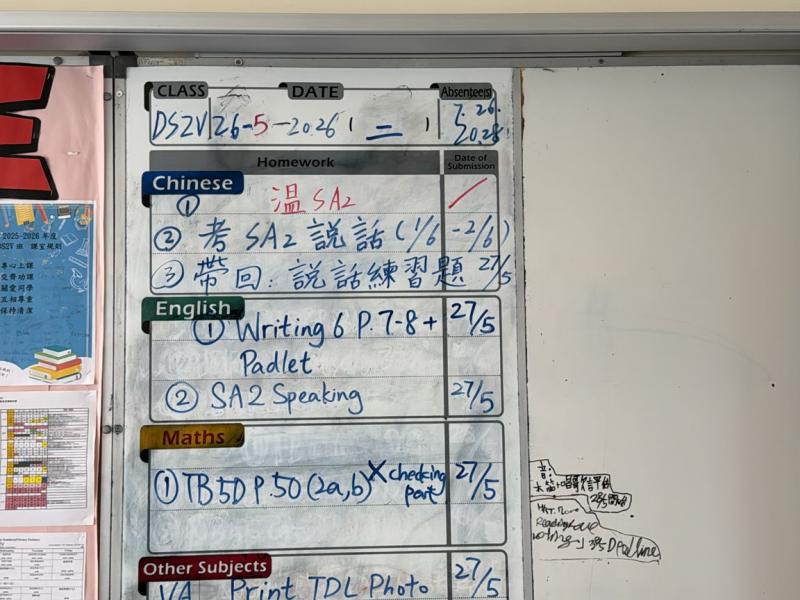 CLASS DATE Absentee(s)
DS2V 26-5-2026 (二) 7.26.
20.28.
Homework Date of Submission
Chinese
① 温 SA2
② 考 SA2 説話 (1/6 - 2/6)
③ 帶回：説話練習題 27/5
English
① Writing 6 P.7-8 + 27/5
Padlet
② SA2 Speaking 27/5
Maths
① TB 5D P.50 (2a,b) X checking part 27/5
Other Subjects
VA Print TDL Photo 27/5
2025-2026 年度
DS2V 班 課室規則
專心上課
交齊功課
關愛同學
互相尊重
保持清潔
Deadline